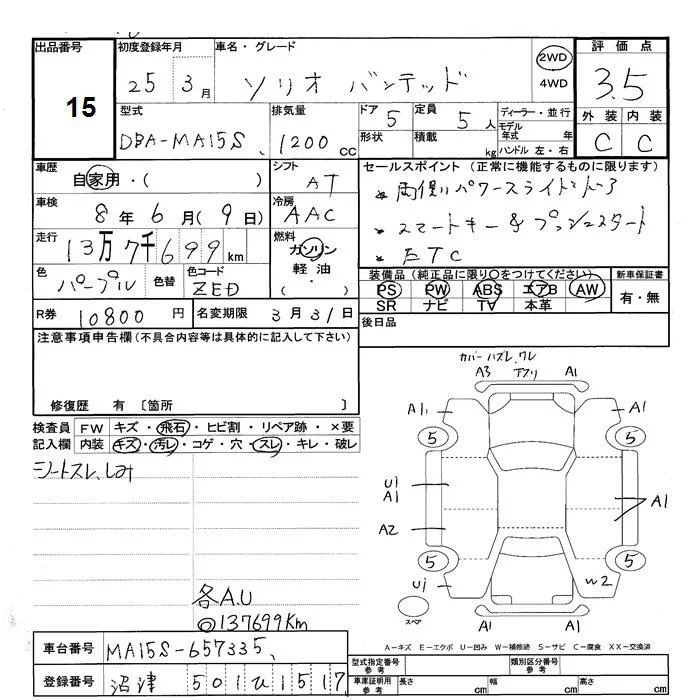 出品番号 15
初度登録年月 25 3月
車名・グレード ソリオ バンデッド
2WD
4WD
評価点 3.5
外装 内装
C C
型式 DBA-MA15S
排気量 1200 CC
ドア 5
定員 5人
形状 積載 kg
ディーラー・並行
モデル年式 年
ハンドル 左・右
車歴 自家用・( )
シフト AT
車検 8年6月(9日)
冷房 AAC
走行 13万7千699km
燃料 ガソリン
軽油
・
色 パープル 色替
色コード ZED
R券 10800円
名変期限 3月31日
セールスポイント(正常に機能するものに限ります)
両側パワースライドドア
スマートキー&プッシュスタート
ETC
装備品(純正品に限り○をつけてください)
PS PW ABS エアB AW
SR ナビ TV 本革
新車保証書
有・無
後日品
注意事項申告欄(不具合内容等は具体的に記入して下さい)
修復歴 有〔箇所 〕
検査員記入欄
FW キズ・飛石・ヒビ割・リペア跡・×要
内装 キズ・汚レ・コゲ・穴・スレ・キレ・破レ
シートスレ、しみ
各A.U
◎137699Km
カバーハズレ、ワレ
A3 下スリ A1
A1 A1
5 5
U1
A1
A1
A2
5 5
U1 W2
スペア
A1 A1
A-キズ E-エクボ U-凹み W-補修跡 S-サビ C-腐食 XX-交換済
車台番号 MA15S-657335
登録番号 沼津 501ひ1517
型式指定番号 参考
類別区分番号 参考
車庫証明用 参考 長さ cm 幅 cm 高さ cm